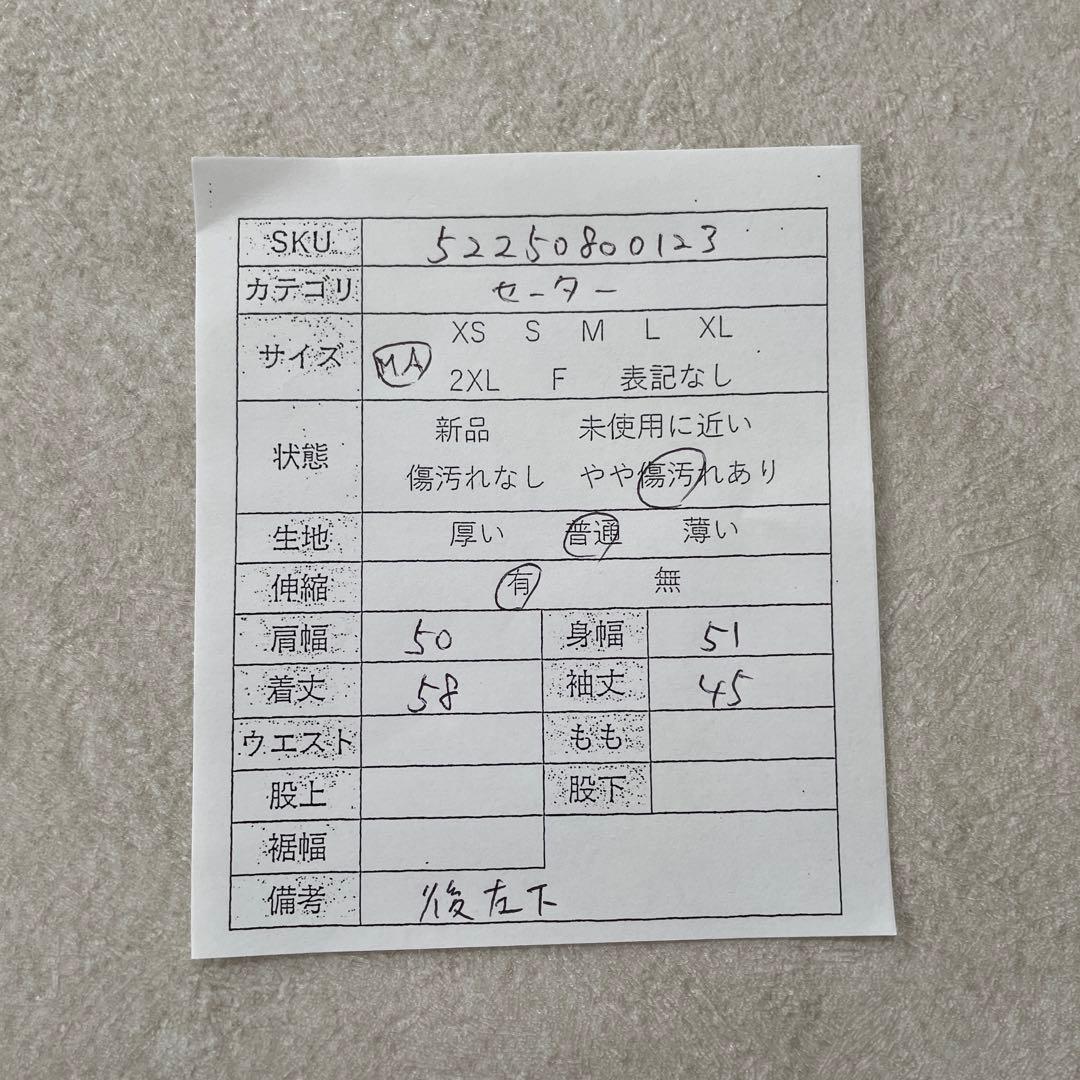 SKU 52250800123
カテゴリ セーター
サイズ MA XS S M L XL
2XL F 表記なし
状態 新品 未使用に近い
傷汚れなし やや傷汚れあり
生地 厚い 普通 薄い
伸縮 有 無
肩幅 50 身幅 51
着丈 58 袖丈 45
ウエスト もも
股上 股下
裾幅
備考 後左下